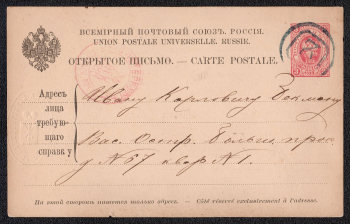 ВСЕМІРНЫЙ ПОЧТОВЫЙ СОЮЗЪ. РОССІЯ.
UNION POSTALE UNIVERSELLE. RUSSIE.
ОТКРЫТОЕ ПИСЬМО. — CARTE POSTALE.
Адресъ
лица
требую-
щаго
справку
Ивану Карловичу Бекману
Вас. Остр. Больш. прос.
д № 67 квар № 1.
На этой сторонѣ пишется только адресъ. — Côté réservé exclusivement à l'adresse.